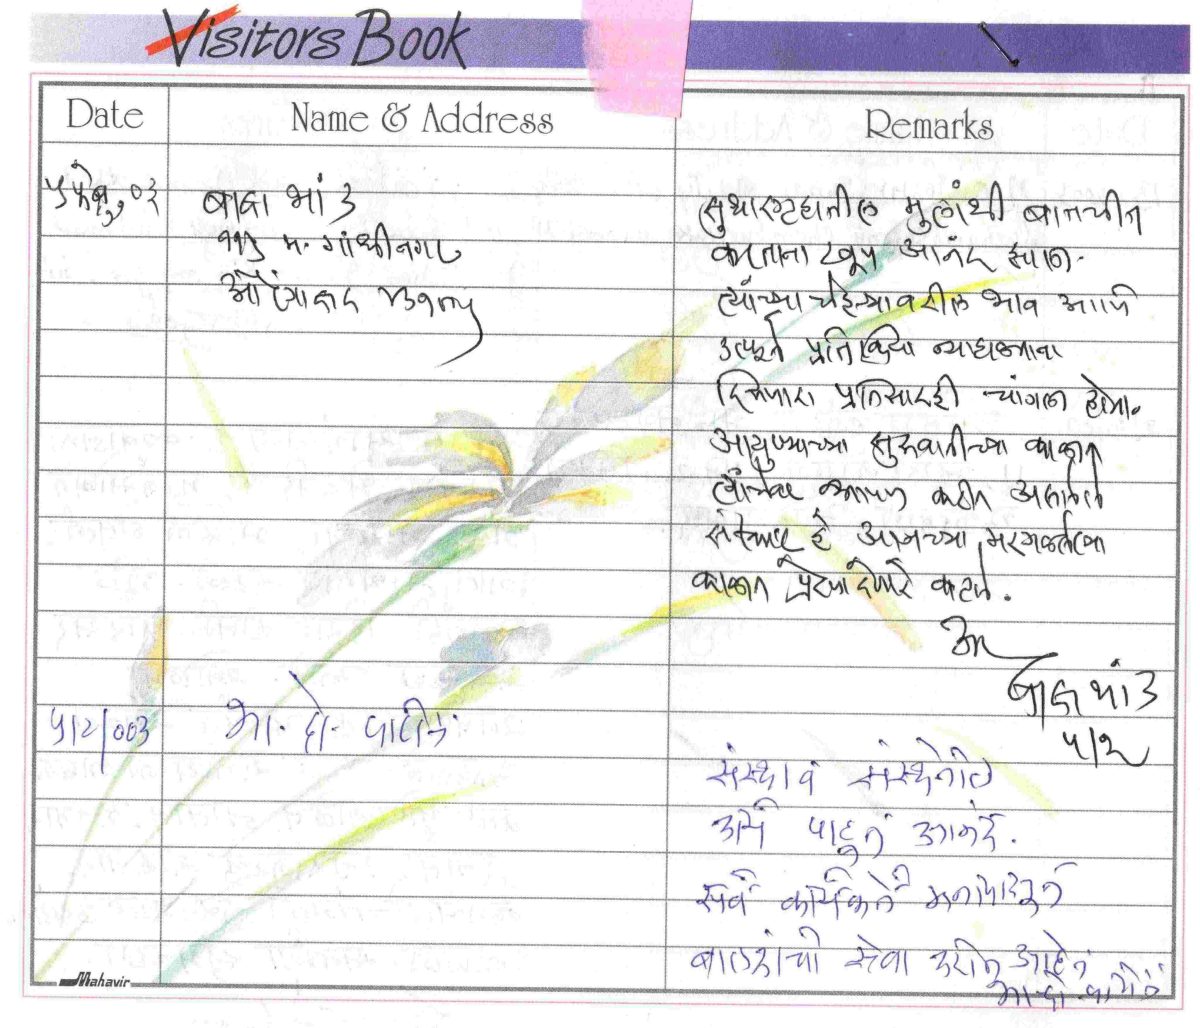 Visitors Book
Date Name & Address Remarks
५ फेब्रु, ०३
बाबा भांड
११५ म. गांधीनगर
औरंगाबाद
सुधारगृहातील मुलांशी बातचीत
करताना खूप आनंद झाला.
त्यांच्या चेहऱ्यावरील भाव आणि
उत्स्फूर्त प्रतिक्रिया
प्रतिसादही चांगला होता.
आयुष्याच्या सुरुवातीच्या काळात
त्यांच्यावर आपण करीत असलेले
संस्कार हे आजच्या
काळात प्रेरणादेणारे वाटले.
बाबा भांड
५/२
५/२/००३ भा. दो. पाटील
संस्था व संस्थेतील
कार्य पाहून आनंद.
सर्व कार्यकर्ते मनापासून
बालकांची सेवा करीत आहेत
भा. दो. पाटील
Mahavir